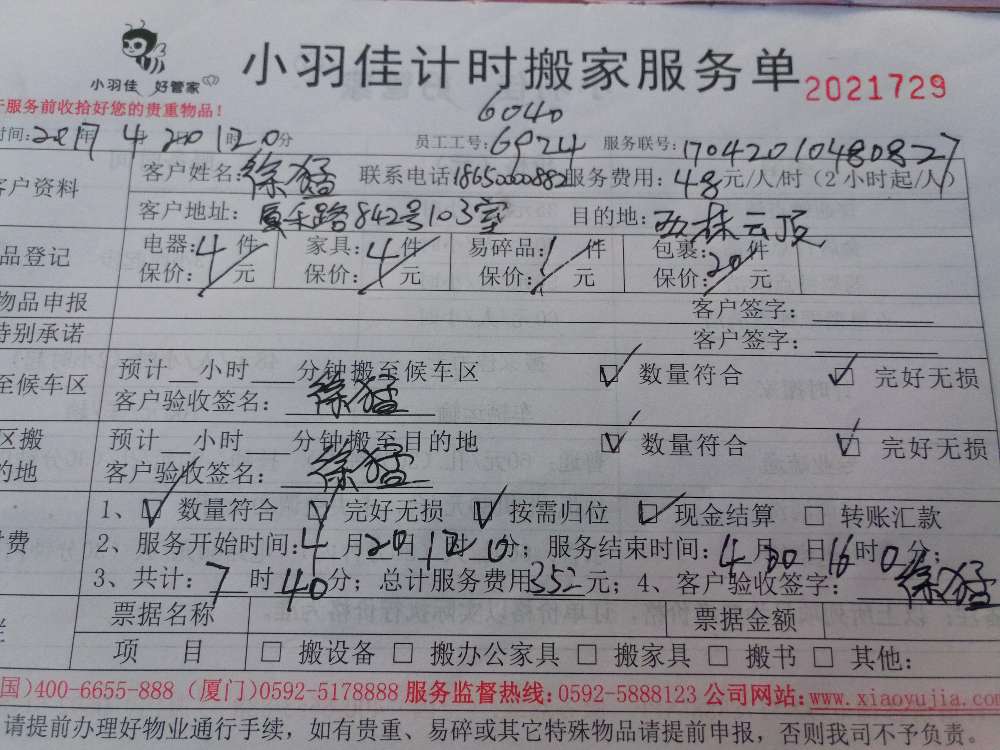 小羽佳 好管家
小羽佳计时搬家服务单 2021729
于服务前收拾好您的贵重物品！
6040
时间:2017年4月20日12时0分 员工工号:6974 服务联号:17042010480827
客户资料 客户姓名:徐猛 联系电话18650000882服务费用:48元/人/时(2小时起/人)
客户地址:厦禾路842号103室 目的地:云顶
品登记 电器:4件 家具:4件 易碎品:1件 包裹:20件
保价: 元 保价: 元 保价: 元 保价: 元
物品申报 客户签字:
特别承诺 客户签字:
至候车区 预计__小时__分钟搬至候车区 ☑ 数量符合 ☑ 完好无损
客户验收签名:徐猛
区搬 预计__小时__分钟搬至目的地 ☑ 数量符合 ☑ 完好无损
的地 客户验收签名:徐猛
1、☑ 数量符合 ☑ 完好无损 ☑ 按需归位 ☑ 现金结算 □ 转账汇款
付费 2、服务开始时间:4月20日12时0分;服务结束时间:4月20日16时0分;
3、共计:7时40分;总计服务费用352元;4、客户验收签字:徐猛
票据名称 票据金额
项目 □ 搬设备 □ 搬办公家具 □ 搬家具 □ 搬书 □ 其他:
国)400-6655-888 (厦门)0592-5178888 服务监督热线:0592-5888123 公司网站:www.xiaoyujia.com
请提前办理好物业通行手续,如有贵重、易碎或其它特殊物品请提前申报,否则我司不予负责。